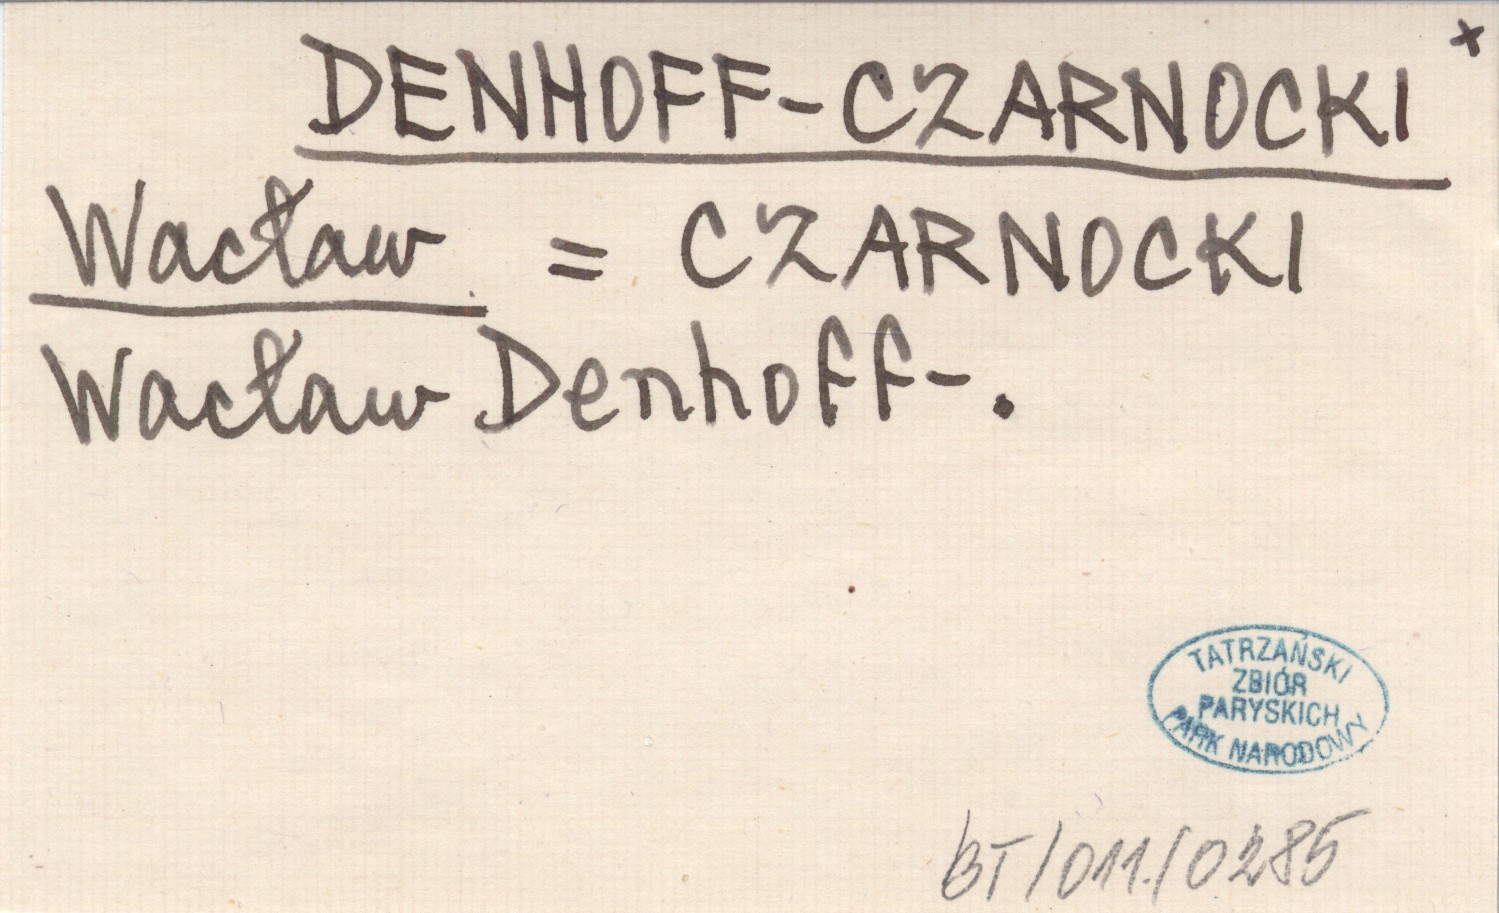 DENHOFF-CZARNOCKI +
Wacław = CZARNOCKI
Wacław Denhoff-.
TATRZAŃSKI
ZBIÓR
PARYSKICH
PARK NARODOWY
BT/011/0285